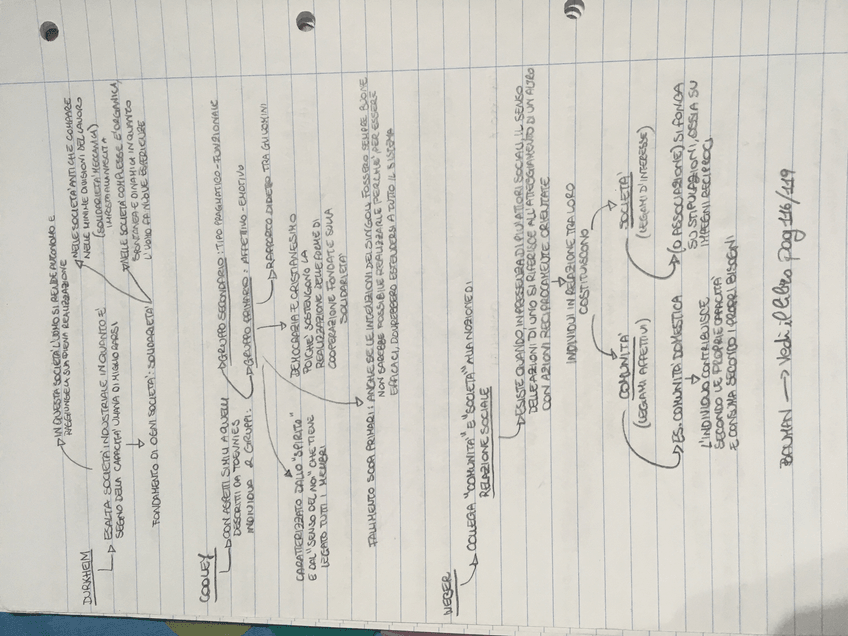 DURKHEIM
IN QUESTA SOCIETÀ L'UOMO SI RENDE AUTONOMO E
RAGGIUNGE LA SUA PIENA REALIZZAZIONE
ESALTA SOCIETÀ INDUSTRIALE IN QUANTO È
SEGNO DELLA CAPACITÀ UMANA DI MIGLIORARSI
FONDAMENTO DI OGNI SOCIETÀ: SOLIDARIETÀ
NELLE SOCIETÀ ANTICHE COMPARE
NELLE MINIME DIVISIONI DEL LAVORO
(SOLIDARIETÀ MECCANICA)
IMPOSTA ALLA NASCITA
NELLE SOCIETÀ COMPLESSE È ORGANICA,
SPONTANEA E DINAMICA IN QUANTO
L'UOMO FA NUOVE ESPERIENZE
COOLEY
CON ASPETTI SIMILI A QUELLI
DESCRITTI DA TOENNIES
INDIVIDUA 2 GRUPPI:
GRUPPO SECONDARIO: TIPO PRAGMATICO-FUNZIONALE
GRUPPO PRIMARIO: AFFETTIVO-EMOTIVO
RAPPORTO DIRETTO TRA GLI UOMINI
CARATTERIZZATO DALLO "SPIRITO"
E DAL "SENSO DEL NOI" CHE TIENE
LEGATO TUTTI I MEMBRI
DEMOCRAZIA E CRISTIANESIMO
POICHÈ SOSTENGONO LA
REALIZZAZIONE DELLE FORME DI
COOPERAZIONE FONDATE SULLA
SOLIDARIETÀ
FALLIMENTO SCOPI PRIMARI: ANCHE SE LE INTENZIONI DEI SINGOLI FOSSERO SEMPRE BUONE
NON SAREBBE POSSIBILE REALIZZARLE PERCHÈ PER ESSERE
EFFICACI, DOVREBBERO ESTENDERSI A TUTTO IL SISTEMA
WEBER
COLLEGA "COMUNITÀ" E "SOCIETÀ" ALLA NOZIONE DI
RELAZIONE SOCIALE
ESISTE QUANDO, IN PRESENZA DI PIÙ ATTORI SOCIALI, IL SENSO
DELLE AZIONI DI UNO SI RIFERISCE ALL'ATTEGGIAMENTO DI UN ALTRO
CON AZIONI RECIPROCAMENTE ORIENTATE
INDIVIDUI IN RELAZIONE TRA LORO
COSTITUISCONO
COMUNITÀ
(LEGAMI AFFETTIVI)
SOCIETÀ
(LEGAMI D'INTERESSE)
ES. COMUNITÀ DOMESTICA
L'INDIVIDUO CONTRIBUISCE
SECONDO LE PROPRIE CAPACITÀ
E CONSUMA SECONDO I PROPRI BISOGNI
(O ASSOCIAZIONE) SI FONDA
SU STIPULAZIONI, OSSIA SU
IMPEGNI RECIPROCI
BAUMAN → Vedi il libro pag 116/119